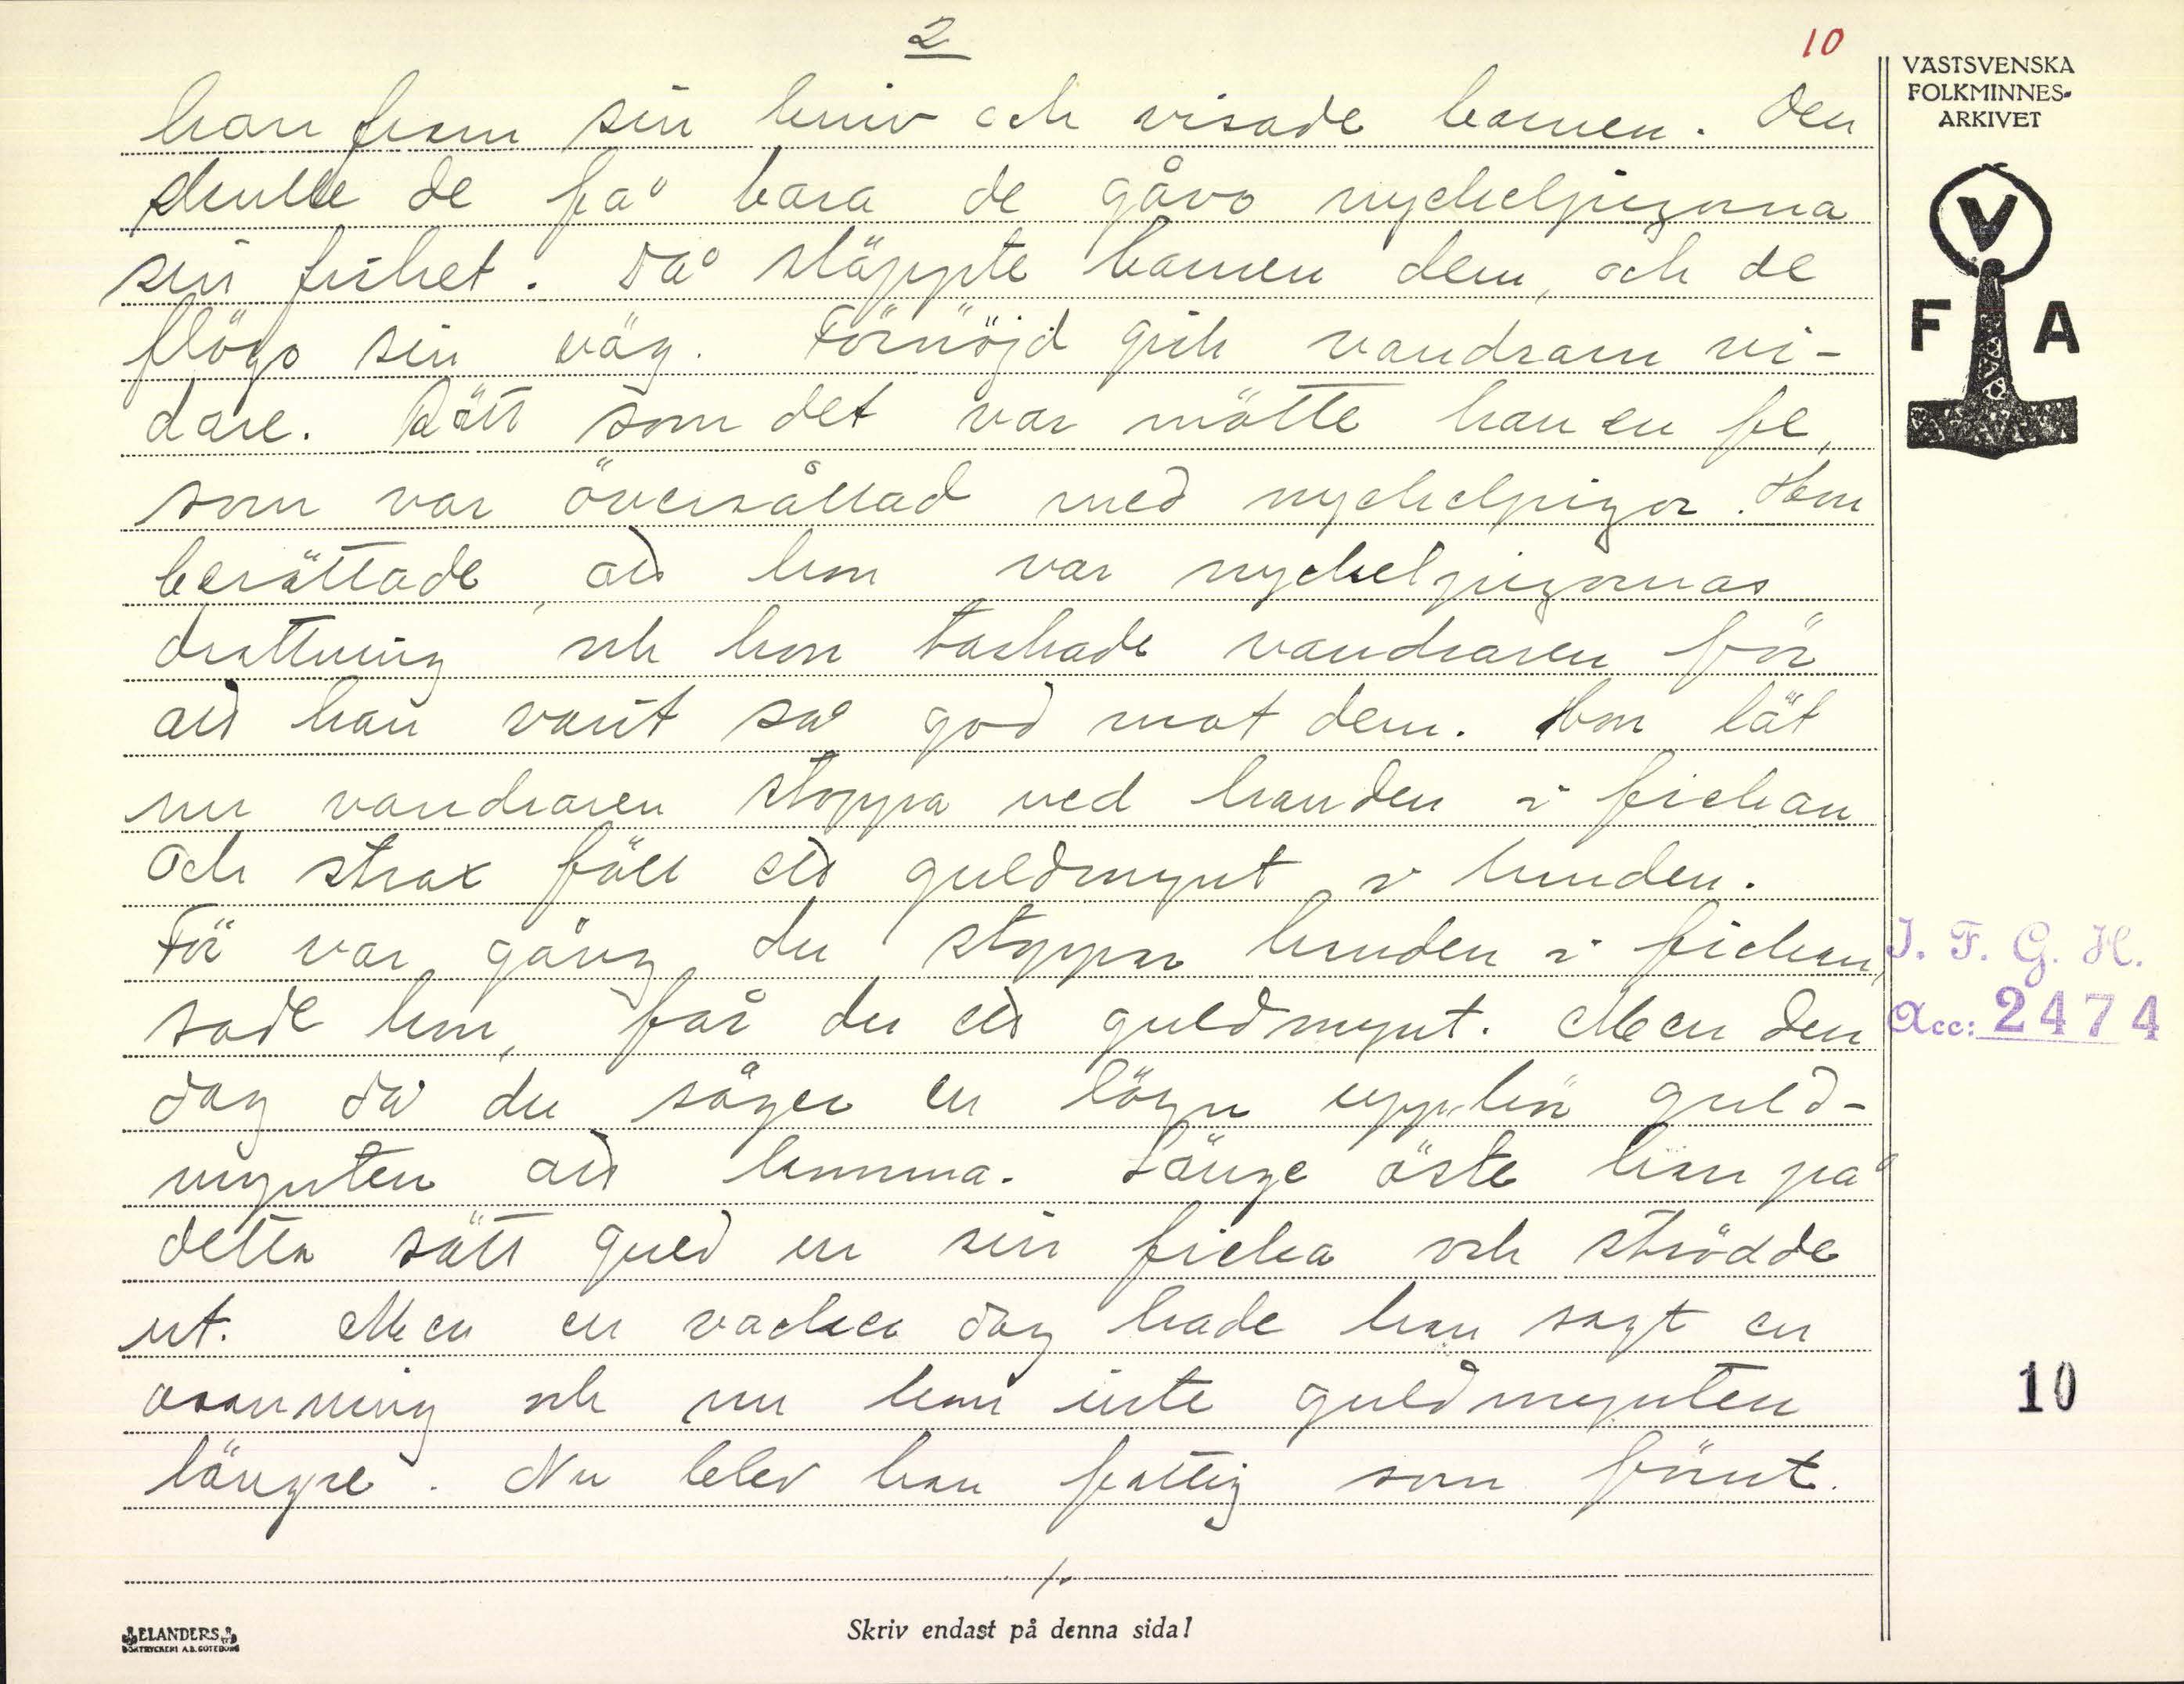 2
10
VÄSTSVENSKA
FOLKMINNES-
ARKIVET
V
F A
han fram sin kniv och visade barnen. Den
skulle de få bara de gåvo nyckelpigorna
sin frihet. Då släppte barnen dem, och de
flögo sin väg. Förnöjd gick vandraren vi-
dare. Rätt som det var mötte han en fe,
som var översållad med nyckelpigor. Hon
berättade, att hon var nyckelpigornas
drottning och hon tackade vandraren för
att han varit så god mot dem. Hon lät
nu vandraren stoppa ned handen i fickan
och strax föll ett guldmynt i handen.
För var gång du stoppar handen i fickan,
sade hon, får du ett guldmynt. Men den
dag då du säger en lögn upphör guld-
mynten att komma. Länge öste han på
detta sätt guld ur sin ficka och strödde
ut. Men en vacker dag hade han sagt en
osanning och nu kom inte guldmynten
längre. Nu blev han fattig som förut.
I. F. G. H.
Acc: 2474
10
ELANDERS
BOKTRYCKERI A.B. GÖTEBORG
Skriv endast på denna sida!